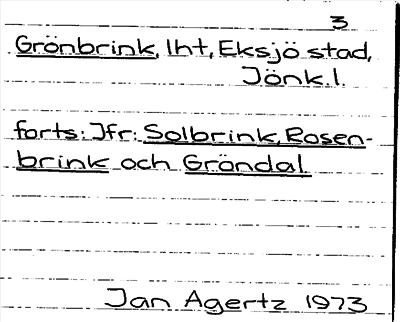 3
Grönbrink, lht, Eksjö stad,
Jönk. l.
forts: Jfr: Solbrink, Rosen-
brink och Gröndal
Jan Agertz 1973